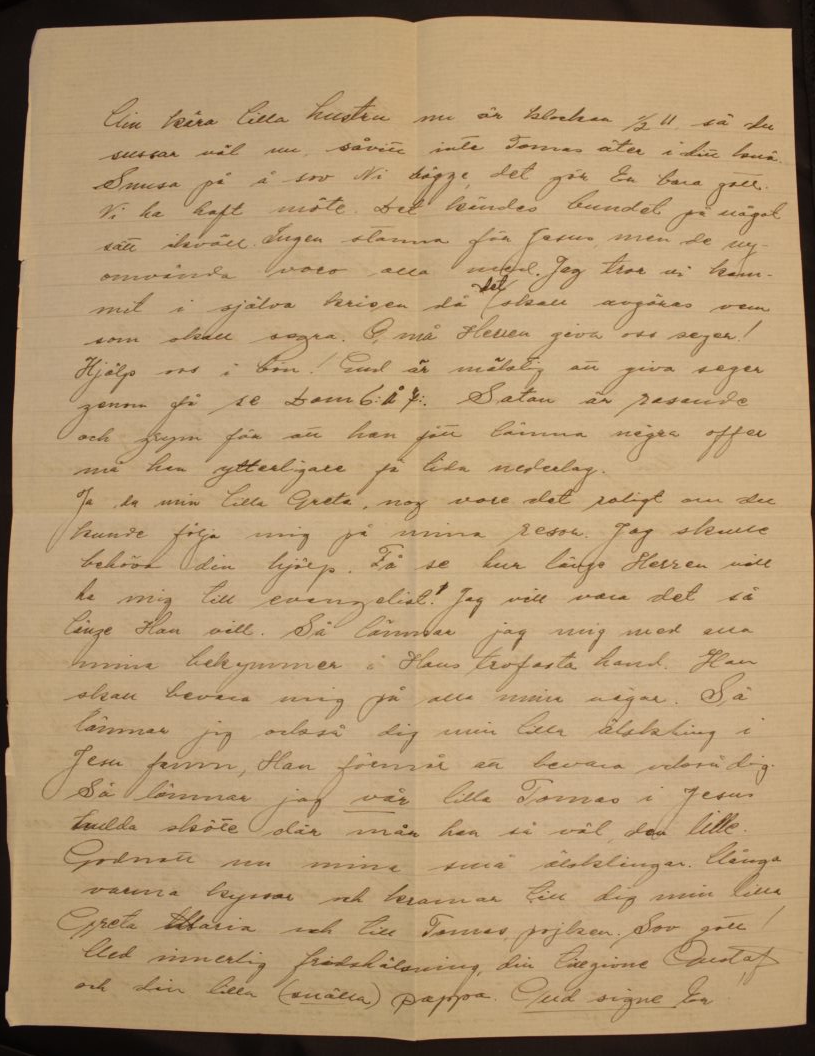 Min kära lilla hustru nu är klockan 1/2 11, så du
sussar väl nu, såvitt inte Tomas äter i ditt knä.
Snusa på å sov Ni bägge, det gör Er bara gott.
Vi ha haft möte. Det kändes bundet på något
sätt ikväll. Ingen stanna för Jesus, men de ny-
omvända voro alla med. Jag tror vi kom-
mit i själva krisen då det skall avgöras vem
som skall segra. O, må Herren giva oss seger!
Hjälp oss i bön! Gud är mäktig att giva seger
genom få se Dom 6: å 7:. Satan är rasande
och grym för att han fått lämna några offer
må han ytterligare få lida nederlag.
Ja du min lilla Greta, nog vore det roligt om du
kunde följa mig på mina resor. Jag skulle
behöva din hjälp. Få se hur länge Herren vill
ha mig till evangelist! Jag vill vara det så
länge Han vill. Så lämnar jag mig med alla
mina bekymmer i Hans trofasta hand. Han
skall bevara mig på alla mina vägar. Så
lämnar jag också dig min lilla älskling i
Jesu famn, Han förmår att bevara också dig.
Så lämnar jag vår lilla Tomas i Jesus
hulda sköte där mår han så väl, den lille.
Godnatt nu mina små älsklingar. Många
varma kyssar och kramar till dig min lilla
Greta Maria och till Tomas pojken. Sov gott!
Med innerlig fridshälsning, din tillgivne Gustaf
och din lilla (snälla) pappa. Gud signe Er!